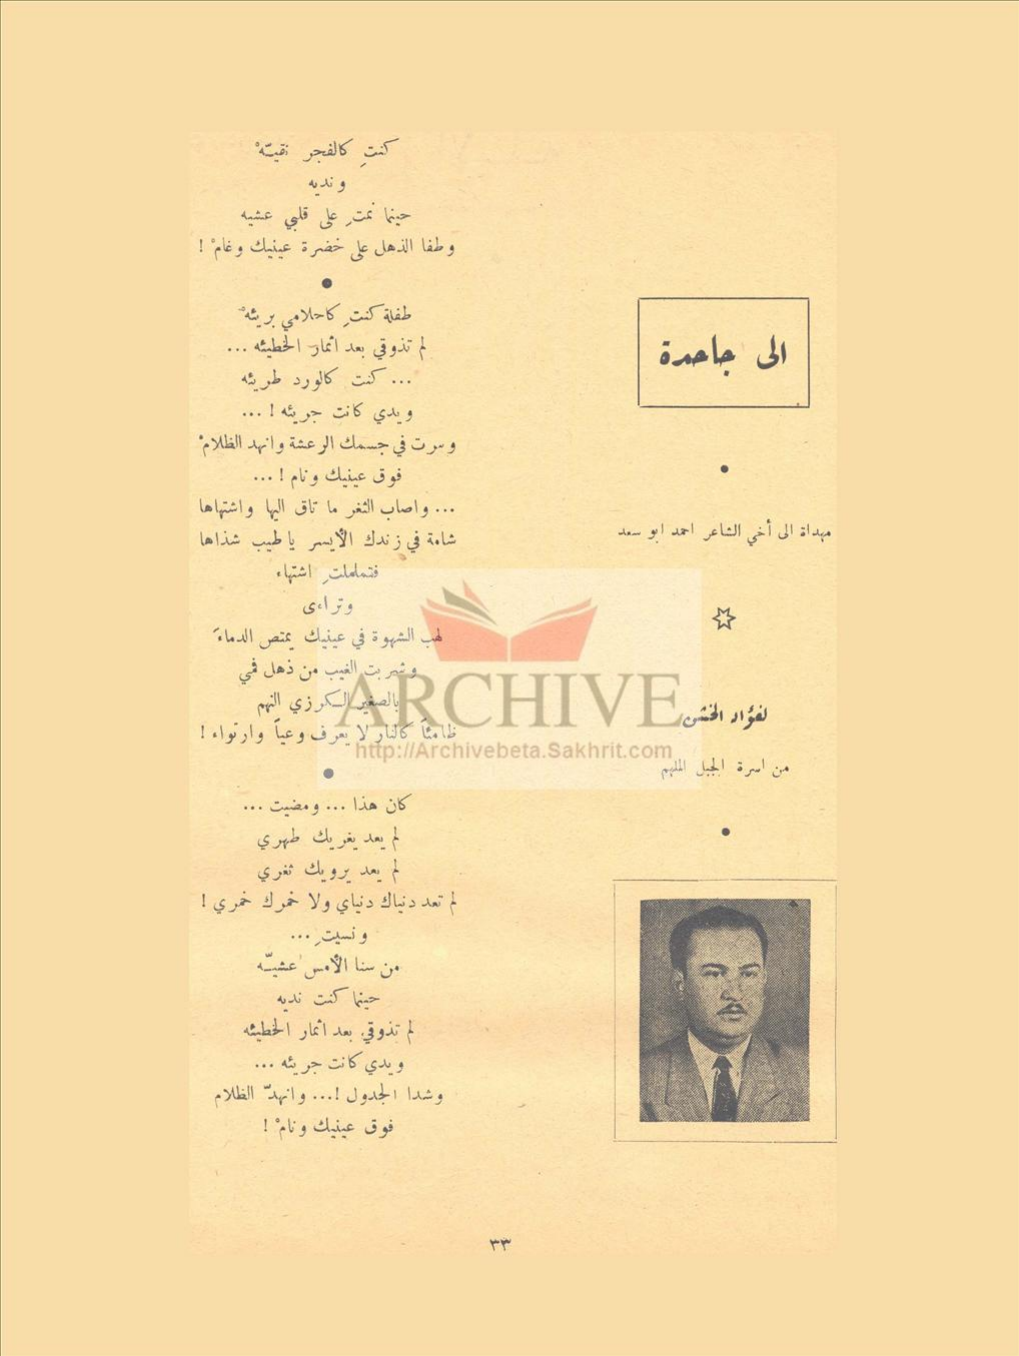 الى جاحدة
مهداة الى أخي الشاعر احمد ابو سعد
لفؤاد الخشن
من اسرة الجبل الملهم
كنتِ كالفجر نقيـّهْ
ونديه
حينما نمتِ على قلبي عشيه
وطفا الذهل على خضرة عينيك وغامْ !
طفلة كنتِ كاحلامي بريئهْ
لم تذوقي بعد اثمار الخطيئه ...
... كنت كالورد طريئه
ويدي كانت جريئه ! ...
وسرت في جسمك الرعشة وانهد الظلامْ
فوق عينيك ونام ! ...
... واصاب الثغر ما تاق اليها واشتهاها
شامة في زندك الأيسر يا طيب شذاها
فتململتِ اشتهاء
وتراءى
لهب الشهوة في عينيك يمتص الدماءَ
وشربت الغيب من ذهل فمي
بالصغير السكرزي النهم
ظامئاً كالنار لا يعرف وعياً وارتواء !
كان هذا ... ومضيت ...
لم يعد يغريك طهري
لم يعد يرويك ثغري
لم تعد دنياك دنياي ولا خمرك خمري !
ونسيتِ ...
من سنا الأمس عشيـّه
حينما كنت نديه
لم تذوقي بعد اثمار الخطيئه
ويدي كانت جريئه ...
وشدا الجدول ! ... وانهدّ الظلام
فوق عينيك ونامْ !
ARCHIVE
http://Archivebeta.Sakhrit.com
٣٣